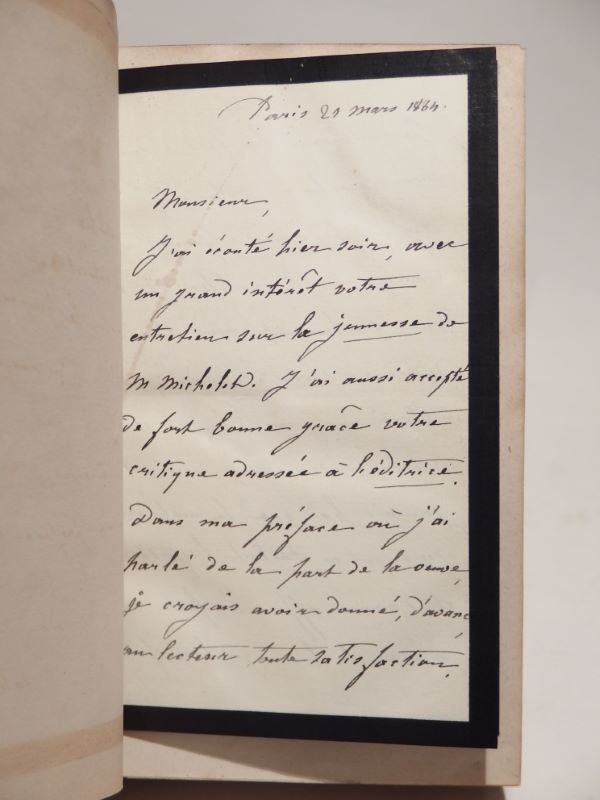 Paris 21 mars 1884.
Monsieur,
J'ai écouté hier soir, avec
un grand intérêt votre
entretien sur la jeunesse de
M Michelet. J'ai aussi accepté
de fort bonne grâce votre
critique adressée à l'éditrice.
Dans ma préface où j'ai
parlé de la part de la veuve,
je croyais avoir donné, d'avance,
au lecteur toute satisfaction.